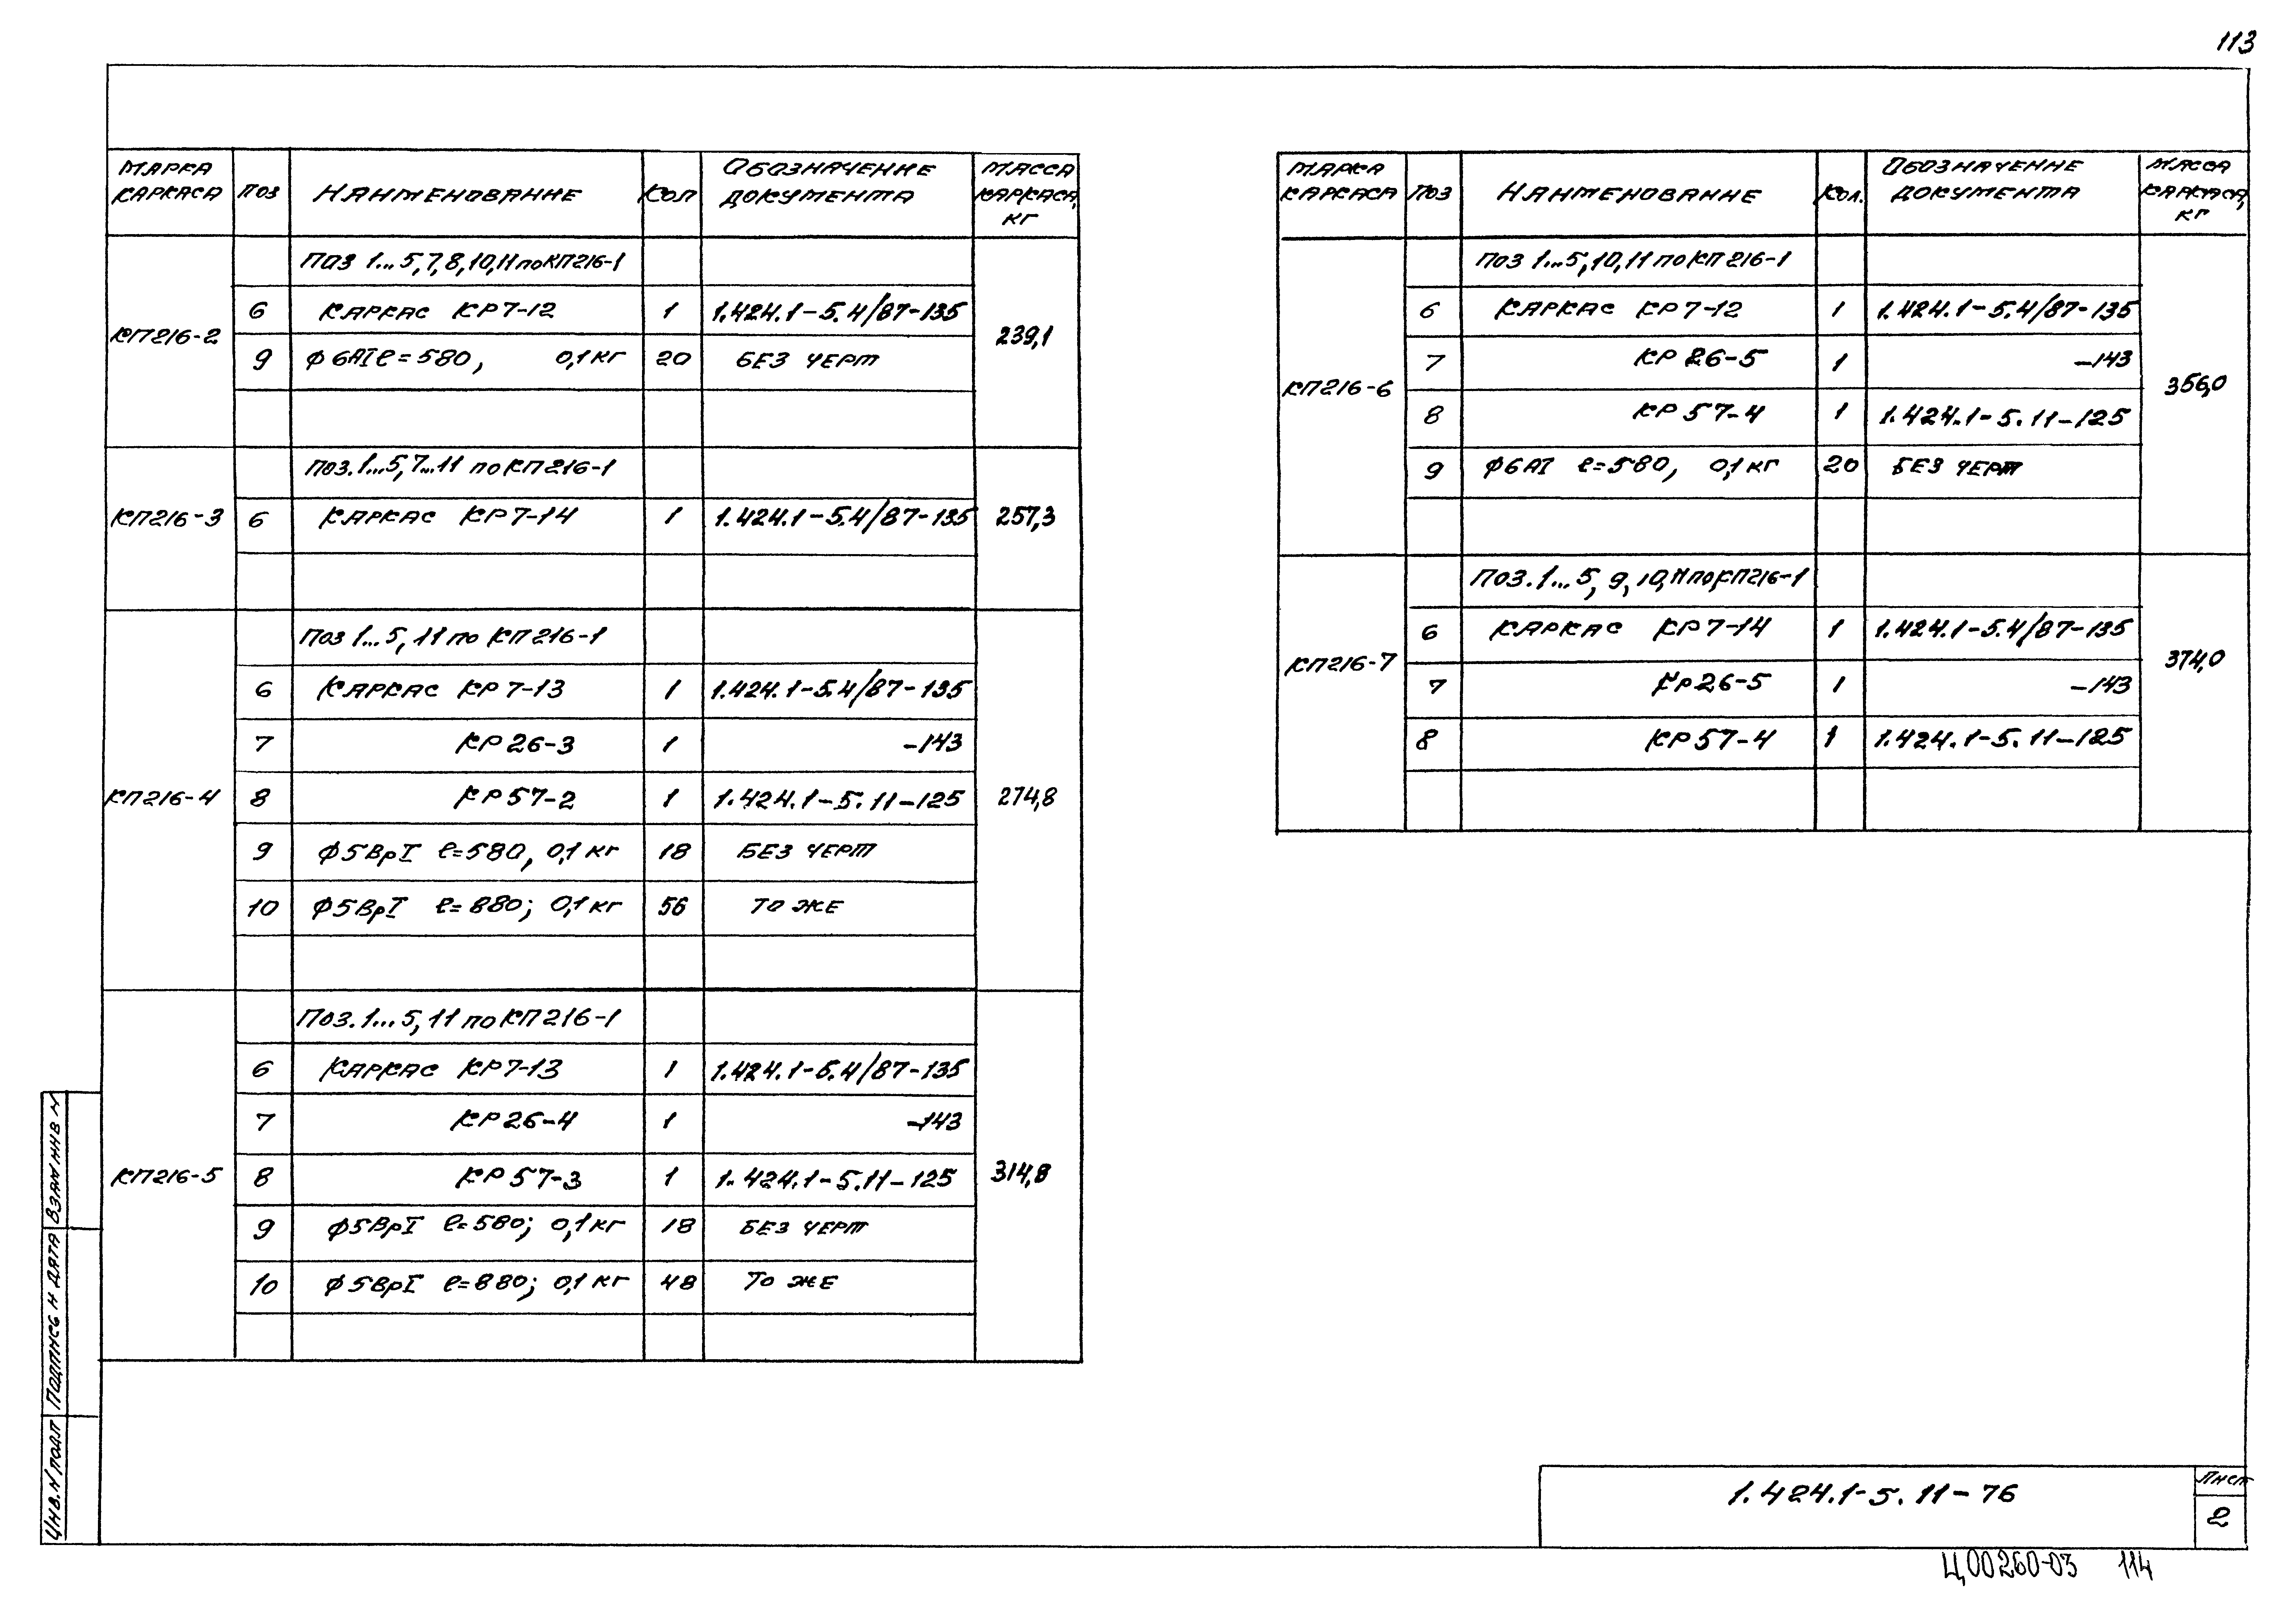 113
МАРКА КАРКАСА ПОЗ НАИМЕНОВАНИЕ КОЛ ОБОЗНАЧЕНИЕ ДОКУМЕНТА МАССА КАРКАСА, КГ
ПОЗ 1...5,7,8,10,11 по КП216-1
КП216-2 6 КАРКАС КР7-12 1 1.424.1-5.4/87-135 239,1
9 Ф6АI ℓ=580, 0,1 кг 20 БЕЗ ЧЕРТ
ПОЗ.1...5,7...11 по КП216-1
КП216-3 6 КАРКАС КР7-14 1 1.424.1-5.4/87-135 257,3
ПОЗ 1...5, 11 по КП216-1
6 КАРКАС КР7-13 1 1.424.1-5.4/87-135
7 КР26-3 1 -143
КП216-4 8 КР57-2 1 1.424.1-5.11-125 274,8
9 Ф5ВрI ℓ=580, 0,1 кг 18 БЕЗ ЧЕРТ
10 Ф5ВрI ℓ=880; 0,1 кг 56 ТО ЖЕ
ПОЗ.1...5,11 по КП216-1
6 КАРКАС КР7-13 1 1.424.1-5.4/87-135
7 КР26-4 1 -143
КП216-5 8 КР57-3 1 1.424.1-5.11-125 314,8
9 Ф5ВрI ℓ=580; 0,1 кг 18 БЕЗ ЧЕРТ
10 Ф5ВрI ℓ=880; 0,1 кг 48 ТО ЖЕ
МАРКА КАРКАСА ПОЗ НАИМЕНОВАНИЕ КОЛ. ОБОЗНАЧЕНИЕ ДОКУМЕНТА МАССА КАРКАСА, КГ
ПОЗ 1...5,10,11 по КП216-1
6 КАРКАС КР7-12 1 1.424.1-5.4/87-135
7 КР26-5 1 -143
КП216-6 8 КР57-4 1 1.424.1-5.11-125 356,0
9 Ф6АI ℓ=580, 0,1 кг 20 БЕЗ ЧЕРТ
ПОЗ.1...5, 9, 10, 11 по КП216-1
6 КАРКАС КР7-14 1 1.424.1-5.4/87-135
КП216-7 7 КР26-5 1 -143 374,0
8 КР57-4 1 1.424.1-5.11-125
ИНВ.N ПОДЛ ПОДПИСЬ И ДАТА ВЗАМ ИНВ N
1.424.1-5.11-76
ЛИСТ
2
Ц00260-03 114